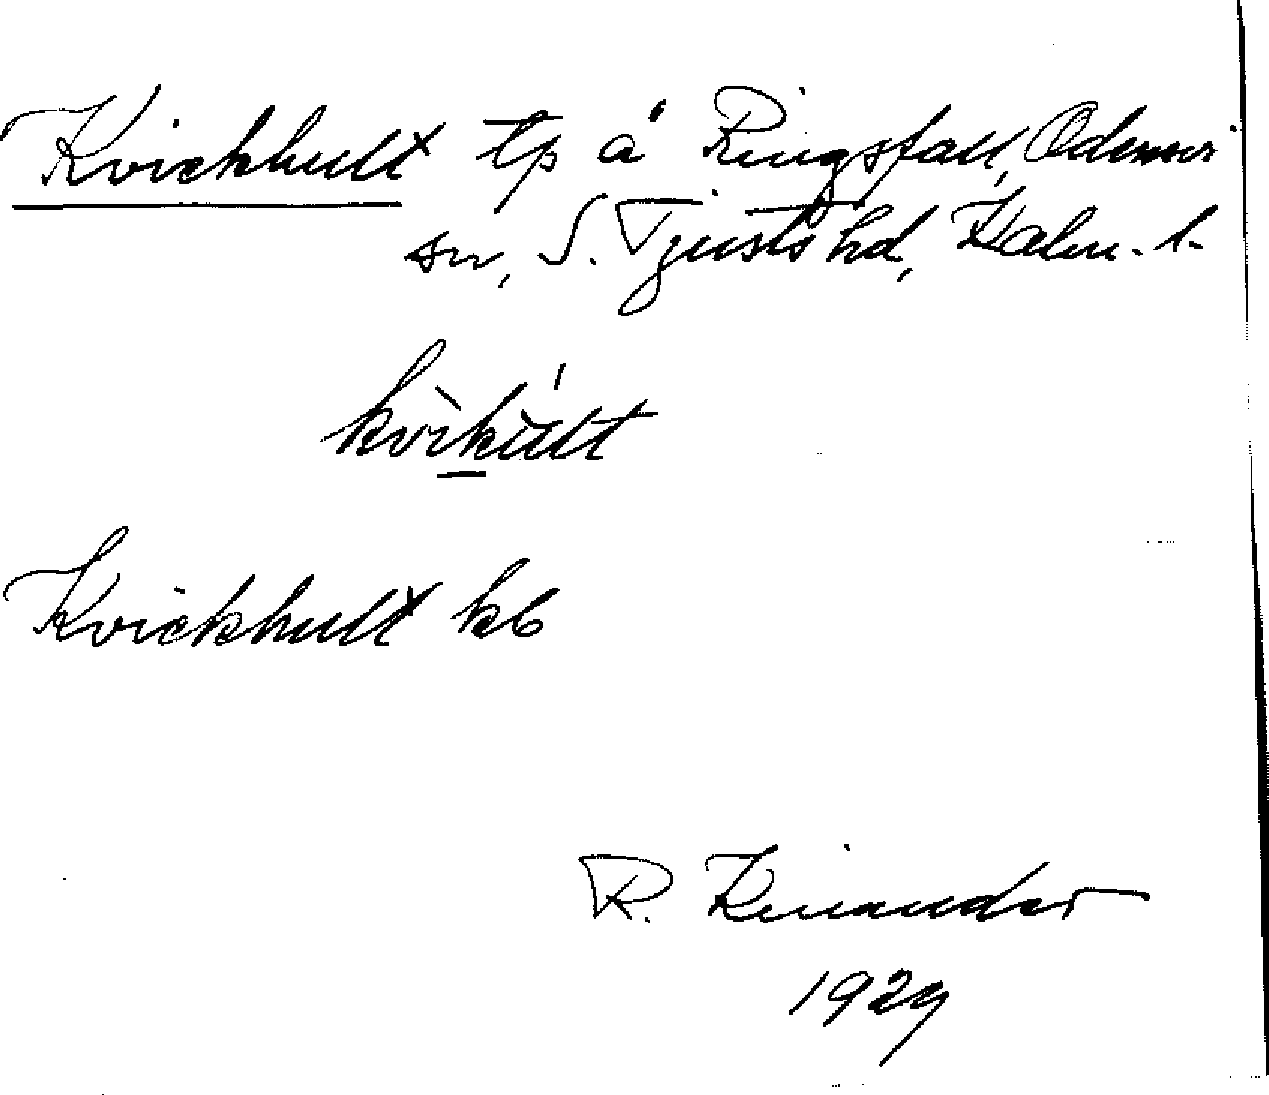 Kvickhult tp å Ringsfall, Odensvi
sn, S. Tjusts hd, Kalm. l.
kvìkúlt
Kvickhult kb
R. Kinander
1929